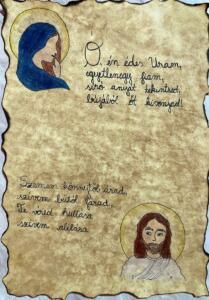 Ó, én édes Uram,
egyetlenegy fiam,
síró anyát tekintsed,
kínjából őt kivonjad!
Szemem könnytől árad,
szívem bútól fárad.
Te véred hullása
szívem alélása